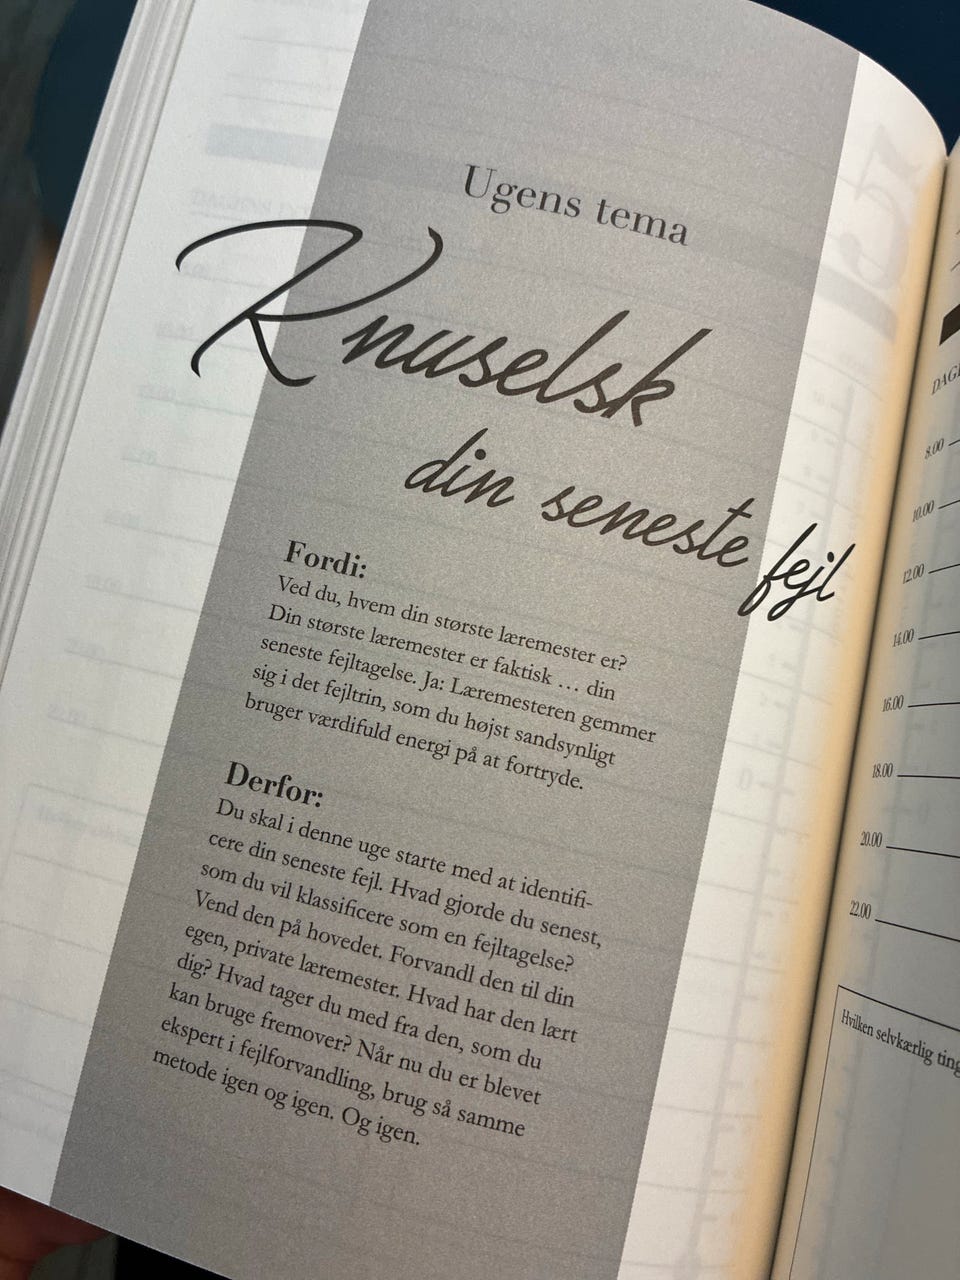 Ugens tema
Knuselsk
din seneste fejl
Fordi:
Ved du, hvem din største læremester er?
Din største læremester er faktisk … din
seneste fejltagelse. Ja: Læremesteren gemmer
sig i det fejltrin, som du højst sandsynligt
bruger værdifuld energi på at fortryde.
Derfor:
Du skal i denne uge starte med at identifi-
cere din seneste fejl. Hvad gjorde du senest,
som du vil klassificere som en fejltagelse?
Vend den på hovedet. Forvandl den til din
egen, private læremester. Hvad har den lært
dig? Hvad tager du med fra den, som du
kan bruge fremover? Når nu du er blevet
ekspert i fejlforvandling, brug så samme
metode igen og igen. Og igen.
8.00
10.00
12.00
14.00
16.00
18.00
20.00
22.00
Hvilken selvkærlig ting